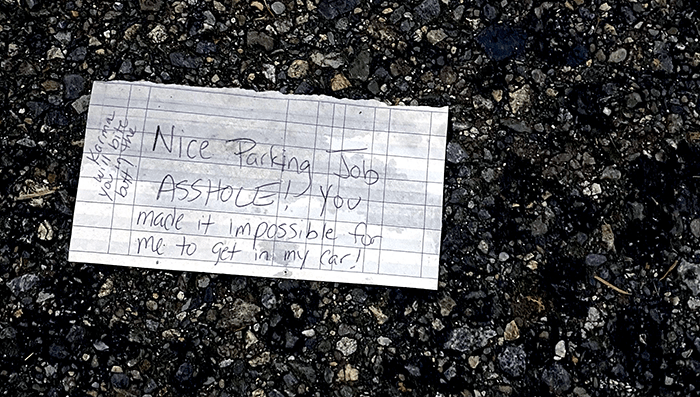 Nice Parking Job
ASSHOLE! You
made it impossible for
me to get in my car!
Karma
will bite
you in the
butt